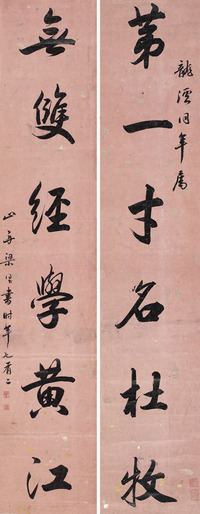 龍溪同年屬
第一才名杜牧
無雙經學黃江
山舟梁同書時年七十有二